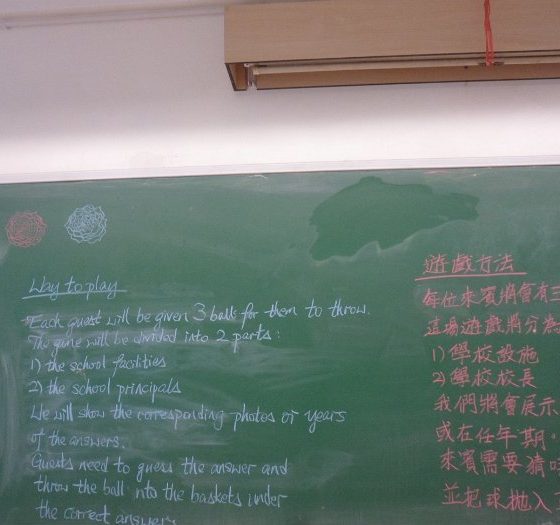 Way to play
Each guest will be given 3 balls for them to throw.
The game will be divided into 2 parts:
1) the school facilities
2) the school principals
We will show the corresponding photos or years
of the answers.
Guests need to guess the answer and
throw the ball into the baskets under
the correct answer.
遊戲方法
每位來賓將會有三
這場遊戲將分為
1) 學校設施
2) 學校校長
我們將會展示
或在任年期.
來賓需要猜
並把球拋入